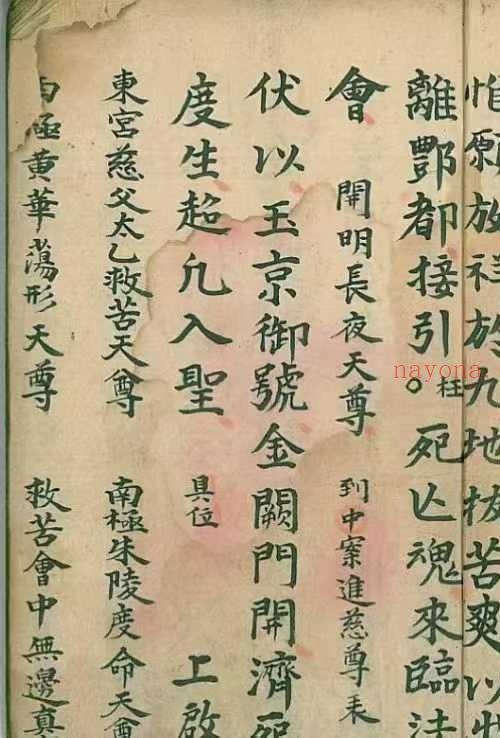 惟願放祥於九地拔苦爽以
離酆都接引。枉死亾魂來臨法
會 開明長夜天尊 到中案進慈尊表
伏以玉京御號金闕門開濟死
度生超凡入聖 具位 上啟
東宮慈父太乙救苦天尊 南極朱陵度命天尊
黃華蕩形天尊 救苦會中無邊真
nayona